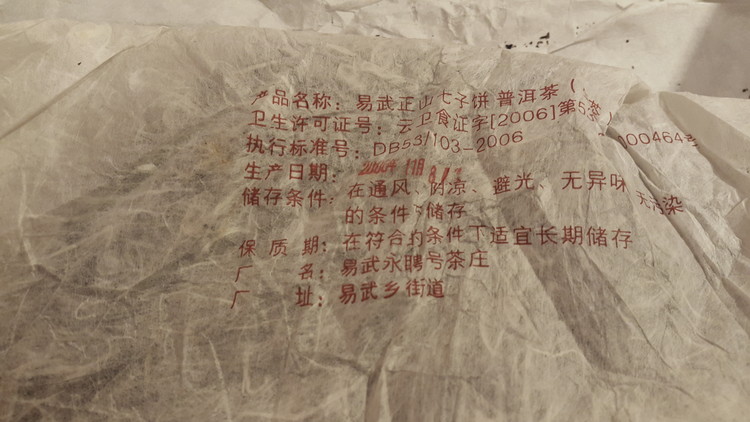 产品名称：易武正山七子饼普洱茶（
卫生许可证号：云卫食证字[2006]第5
000464号
执行标准号：DB53/103-2006
生产日期：
储存条件：在通风、阴凉、避光、无异味 无污染
的条件下储存
保质期：在符合的条件下适宜长期储存
厂名：易武永聘号茶庄
厂址：易武乡街道